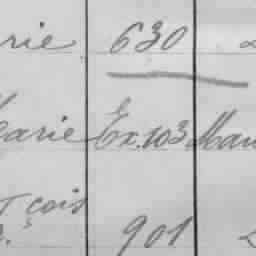 rie 630
Marie Ex.103 Mau
çois
901